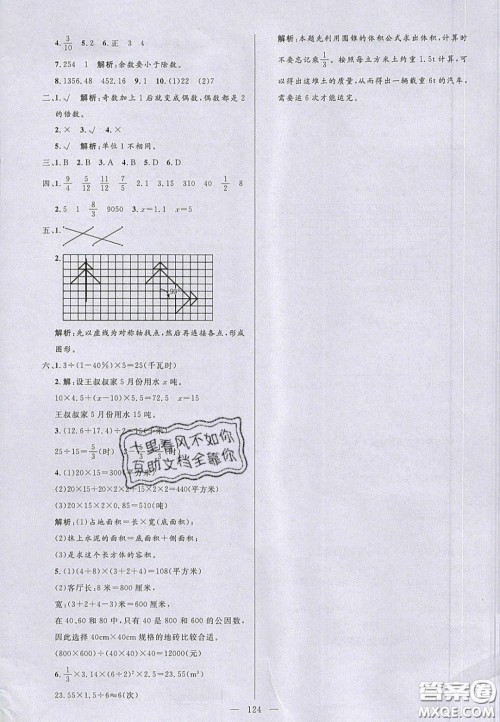 4. 3/10 5. 2 6. 正 3 4
7. 254 1 解析:余数要小于除数。
8. 1356.48 452.16 9. 10. (1)22 (2)7
二、1. √ 解析:奇数加上1后就变成偶数,偶数都是2
的倍数。
2. × 3. ×
5. √ 解析:单位1不相同。
三、1. B 2. B 3. A 4. D 5. B 6. D
四、1. 9/4 5/12 11/12 7/5 2.1 3.15 110 40 1/2 8
2. 5 1 8/3 9050 3. x=1.1 x=5
五、1.
2.
90°
解析:先以虚线为对称轴找点,然后再连接各点,形成
图形。
六、1. 3÷(1-40%)×5=25(千瓦时)
2. 解:设王叔叔家5月份用水x吨。
10×2.5+(x-10)×5.5=52.5 x=15
王叔叔家5月份用水15吨。
3. (12.6+17.4)÷2=15(
25÷15=5/3(
4. (1)20×15=300(平方米)
(2)(20×2+15×2)×2+20×15=440(平方米)
(3)20×15×2=600(立方米)
解析:(1)占地面积=长×宽(底面积);
(2)抹上水泥的面积=底面积+侧面积;
(3)是求这个长方体的容积。
5. (1)(4+8)×(3+6)=108(平方米)
(2)客厅长:8米=800厘米,
宽:(3+6)-(2+3)=4(米)=400厘米,
在40、60和80中,只有40是800和400的公因数,
因此选择40cm×40cm规格的地砖比较合适。
(800×400)÷(40×40)×60=12000(元)
6. 1/3×3.14×(6÷2)²×2.5=23.55(立方米)
23.55×1.5÷6≈6(次)
解析:本题先利用圆锥的体积公式求出体积,计算时
不要忘记乘1/3。按照每立方米土约重1.5t计算,可
以得出这堆土的质量,最后得出一辆载重6t的汽车,
需要运6次才能运完。
十里春风不如你
互助文档全靠你
124
答案圈
MXQE.COM